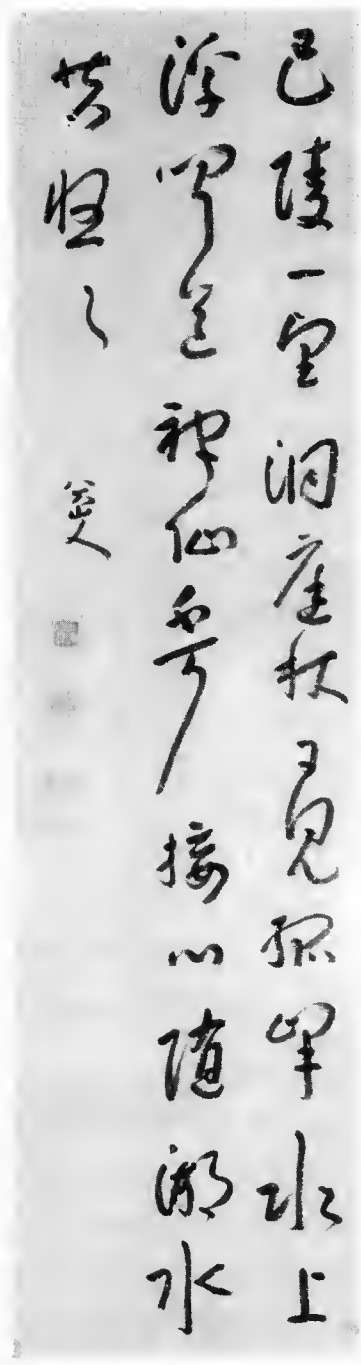 巴陵一望洞庭秋日見孤峰水上
浮聞道神仙不可接心隨湖水
共悠々
八大山人